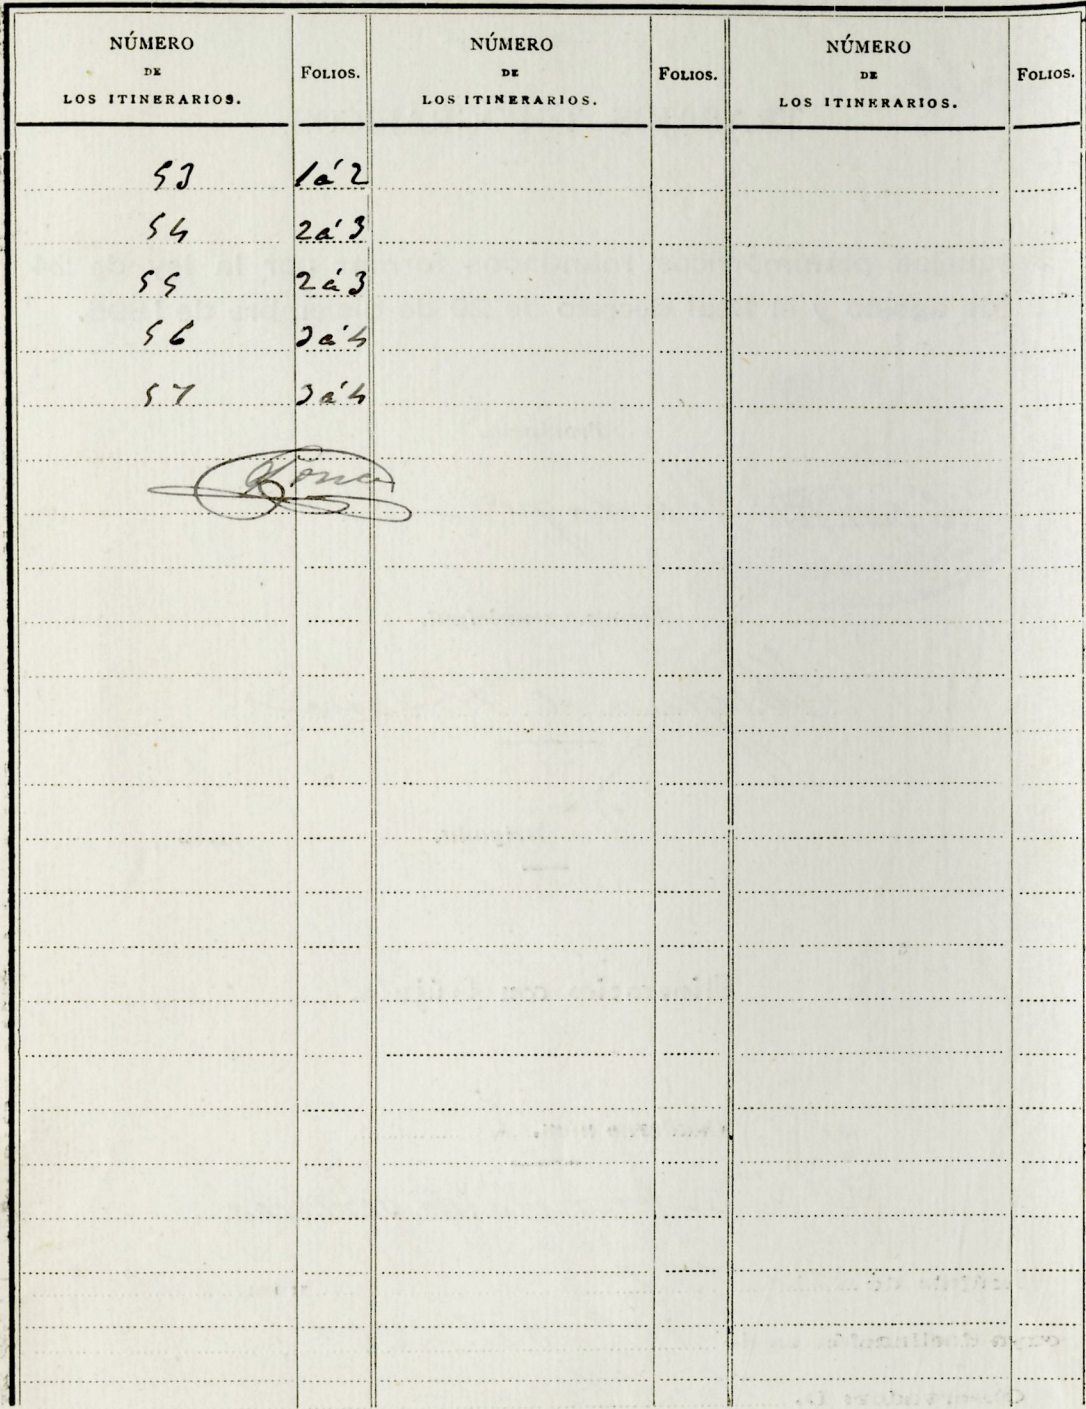 NÚMERO DE LOS ITINERARIOS. FOLIOS. NÚMERO DE LOS ITINERARIOS. FOLIOS. NÚMERO DE LOS ITINERARIOS. FOLIOS.
53 1 á 2
54 2 á 3
55 2 á 3
56 3 á 4
57 3 á 4